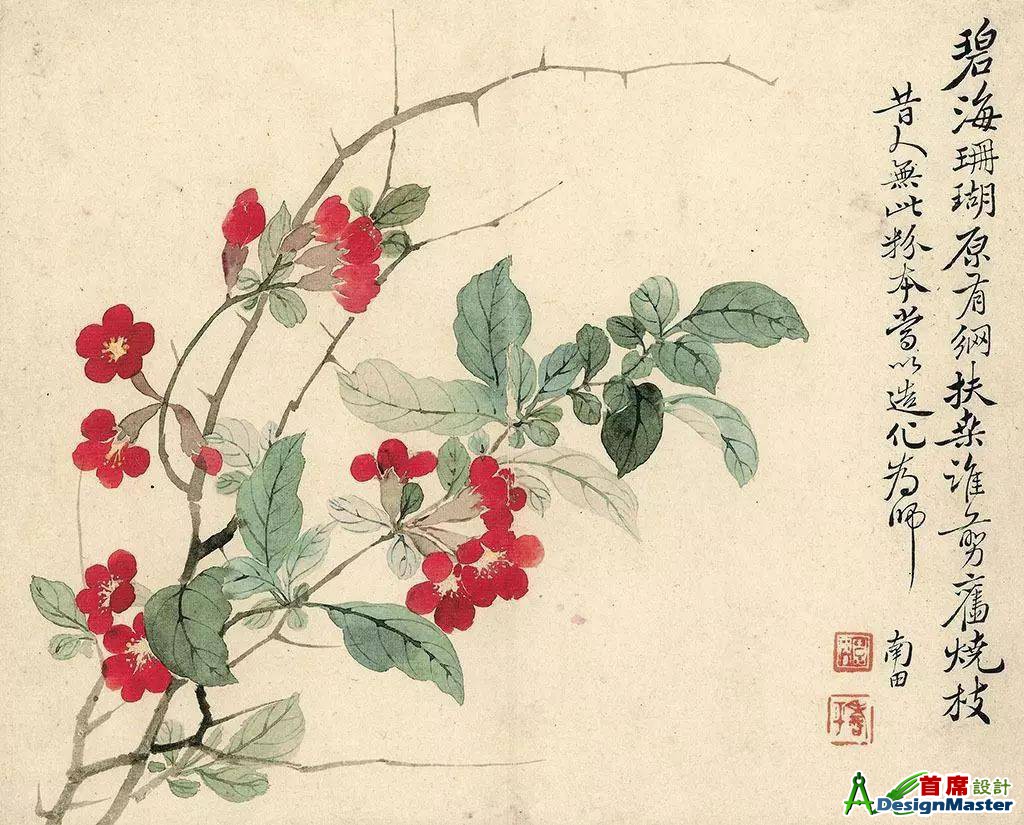 碧海珊瑚原有網扶桑誰剪舊燒枝
昔人無此粉本當以造化為師
南田
首席設計
DesignMaster